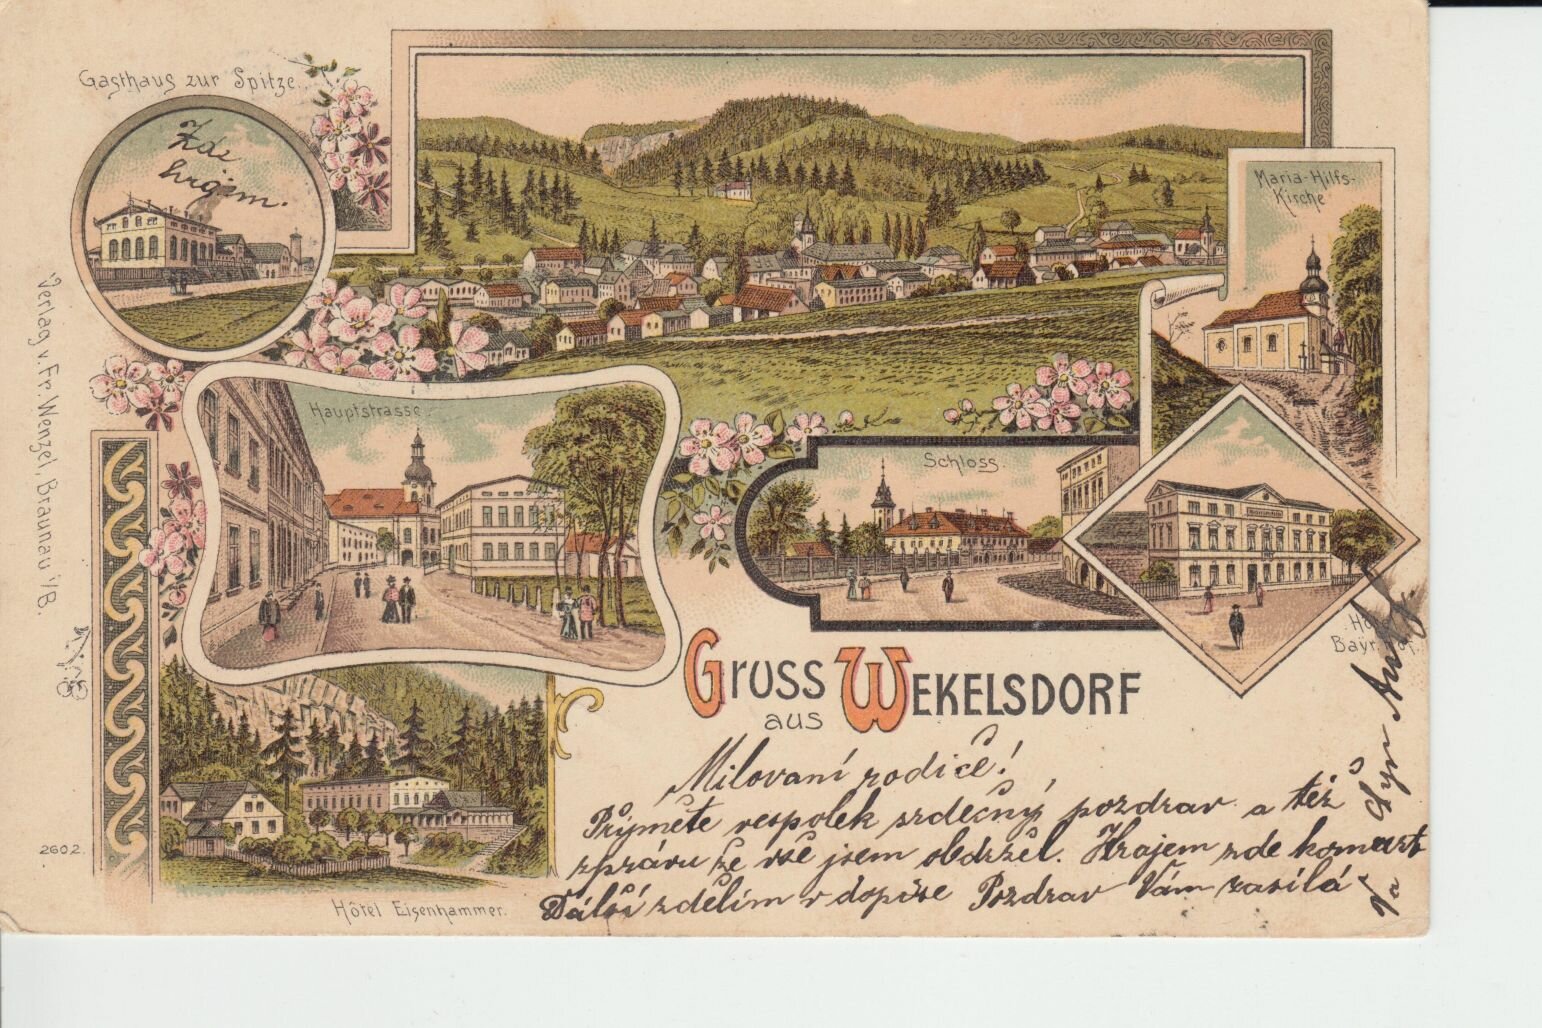 Gasthaus zur Spitze.
Zde
hrajem.
Maria-Hilfs-
Kirche
Hauptstrasse.
Schloss.
Bayr.
Gruss
aus
Wekelsdorf
Hôtel Eisenhammer.
Verlag v. Fr. Wenzel, Braunau i/B.
2602.
Milovaní rodiče!
Prÿměte vespolek srdečný pozdrav a též
zprávu že vše jsem obdržel. Hrajem zde koncert
Dálší zdělím v dopise Pozdrav Vám zasílá
Váš Syn